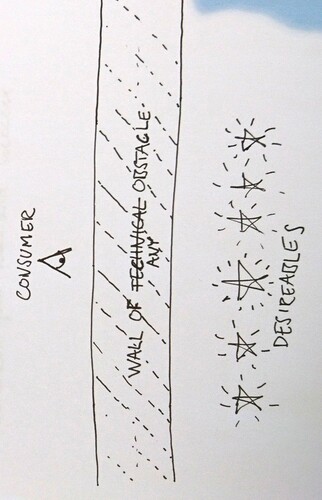 CONSUMER
WALL OF TECHNICAL OBSTACLE
ANY
DESIREABLES